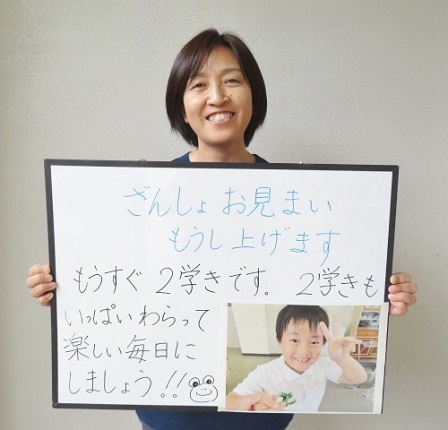 ざんしょ お見まい
もうし上げます
もうすぐ 2学きです。 2学きも
いっぱいわらって
楽しい毎日に
しましょう!!